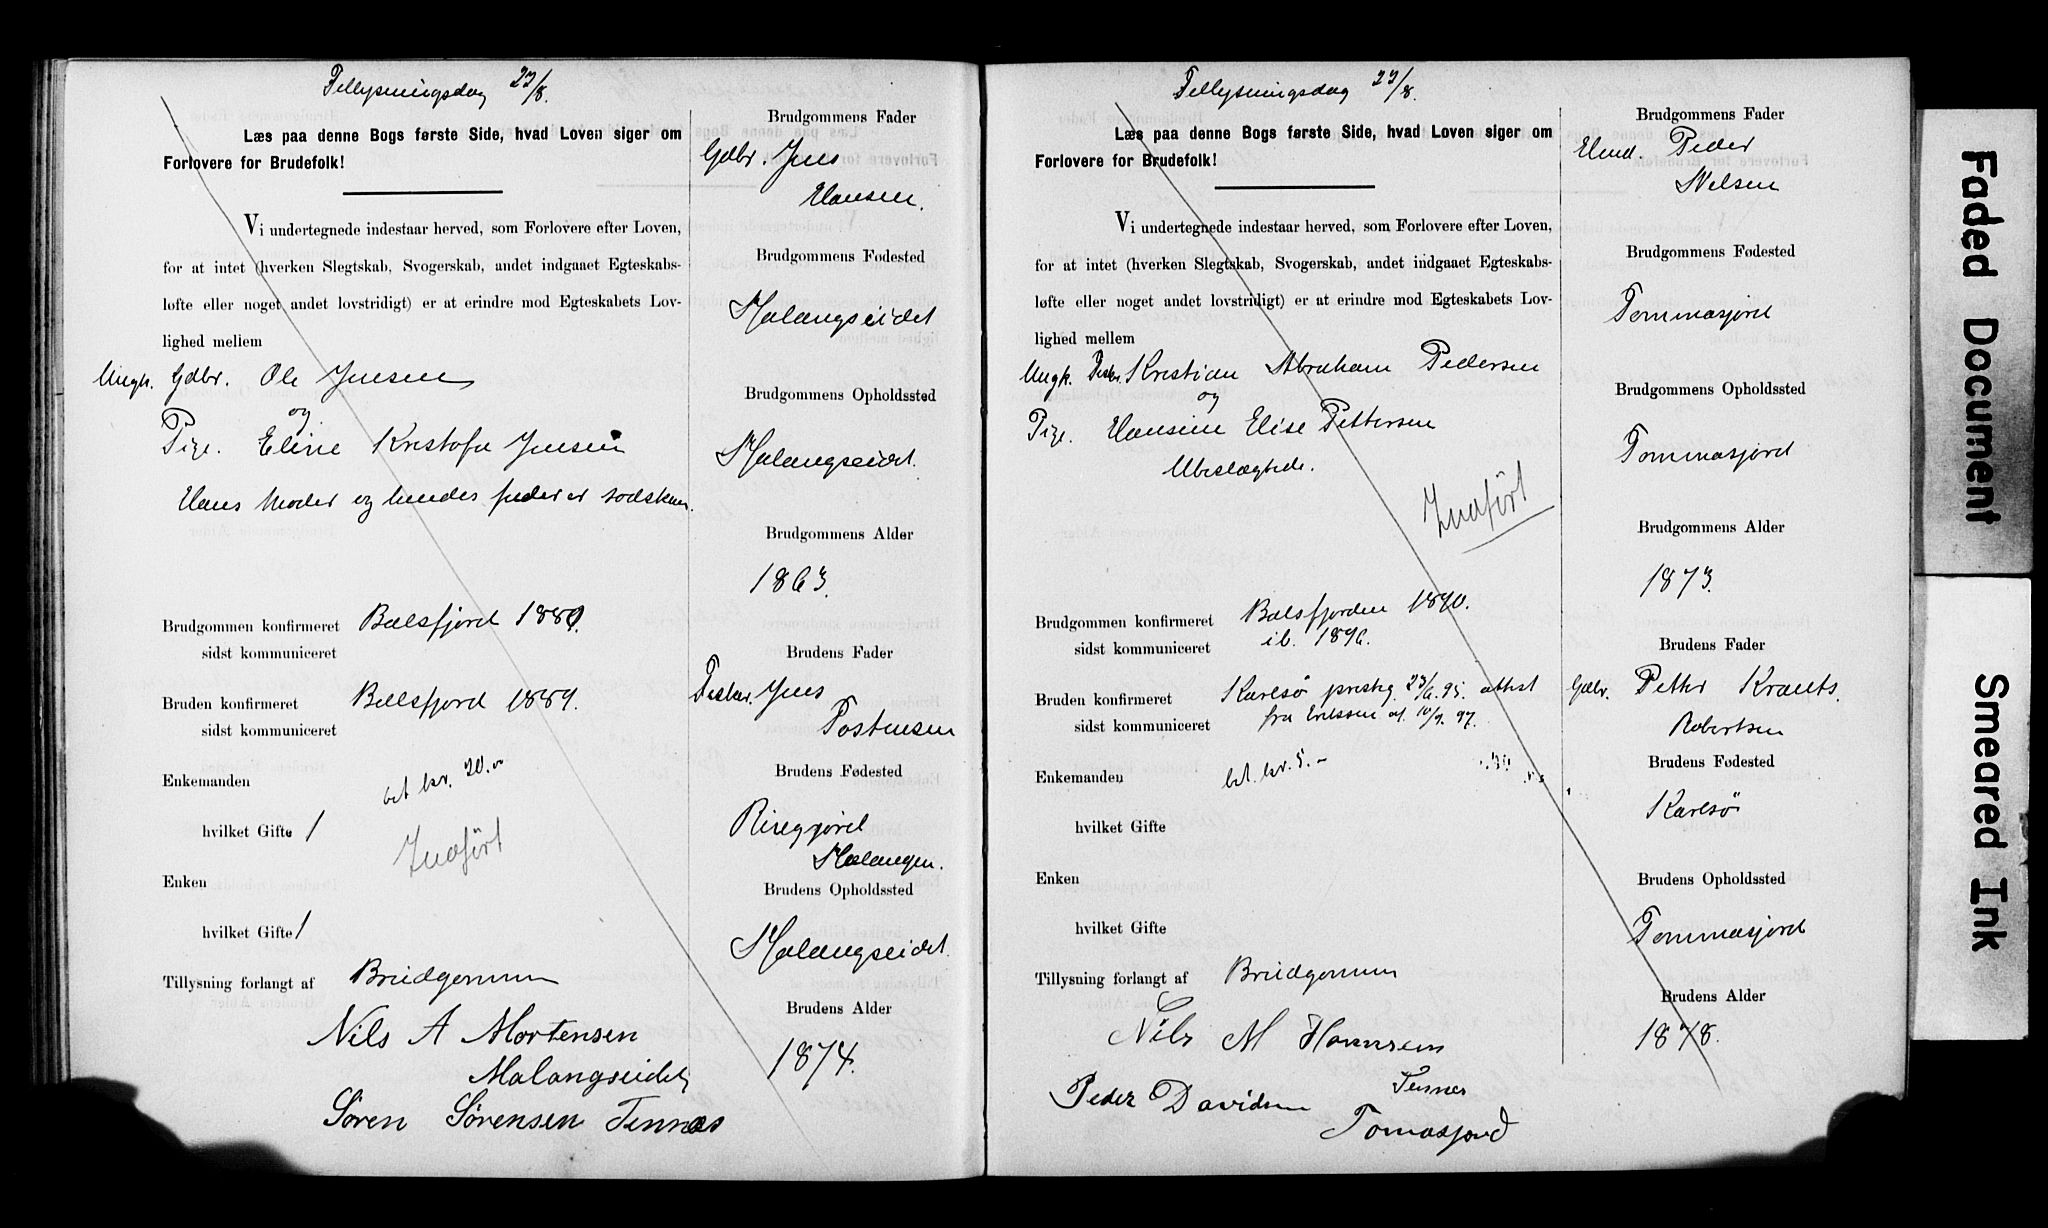 Tillysningsdag 22/8.
Læs paa denne Bogs første Side, hvad Loven siger om
Forlovere for Brudefolk!
Vi undertegnede indestaar herved, som Forlovere efter Loven,
for at intet (hverken Slegtskab, Svogerskab, andet indgaaet Egteskabs-
løfte eller noget andet lovstridigt) er at erindre mod Egteskabets Lov-
lighed mellem
Ungk. Gdbr. Ole Jensen
og
Pige. Eline Kristofa Jensen
Hans Moder og hendes fader er sødskem.
Brudgommen konfirmeret Balsfjord 1880.
sidst kommuniceret
Bruden konfirmeret Balsfjord 1889.
sidst kommuniceret
Enkemanden
bet kr. 20.00
hvilket Gifte /
Indført
Enken
hvilket Gifte /
Tillysning forlangt af Brudgommen
Nils A Mortensen
Malangseidet
Sören Sörensen Tennes
Brudgommens Fader
Gdbr. Jens
Hansen.
Brudgommens Fødested
Malangseidet
Brudgommens Opholdssted
Malangseidet.
Brudgommens Alder
1863.
Brudens Fader
Fisker. Jens
Brudens Fødested
Malangen.
Brudens Opholdssted
Malangseidet.
Brudens Alder
1874.
Tillysningsdag 22/8.
Læs paa denne Bogs første Side, hvad Loven siger om
Forlovere for Brudefolk!
Vi undertegnede indestaar herved, som Forlovere efter Loven,
for at intet (hverken Slegtskab, Svogerskab, andet indgaaet Egteskabs-
løfte eller noget andet lovstridigt) er at erindre mod Egteskabets Lov-
lighed mellem
Ungk. Fisker. Kristian Abraham Pedersen
og
Pige. Hansine Elise Pettersen
Ubeslægtede.
Indført
Brudgommen konfirmeret Balsfjorden 1890.
sidst kommuniceret ib. 1896.
Bruden konfirmeret Karlsö prestg. 23/6. 95. attest
sidst kommuniceret fra Erikssen af 10/7. 97.
Enkemanden bet. kr. 5.-
hvilket Gifte
Enken
hvilket Gifte
Tillysning forlangt af Brudgommen
Nils M Hansen
Tennes
Peder Davidsen
Tomasjord
Brudgommens Fader
Peder
Nilsen
Brudgommens Fødested
Tommasjord
Brudgommens Opholdssted
Tommasjord
Brudgommens Alder
1873.
Brudens Fader
Gdbr. Petter Krants.
Robertsen
Brudens Fødested
Karlsö
Brudens Opholdssted
Tommasjord
Brudens Alder
1878.
Faded Document
Smeared Ink